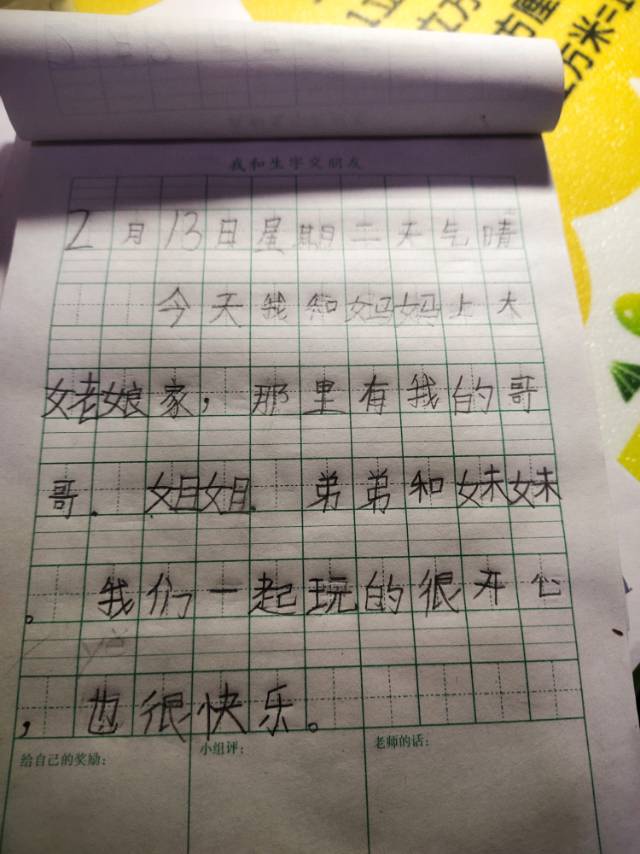 1立
立方
方厘
立方米=1
我和生字交朋友
2月13日星期二天气晴
今天我和妈妈上大
姥娘家，那里有我的哥
哥．姐姐．弟弟和妹妹
。我们一起玩的很开心
，也很快乐。
给自己的奖励：
小组评：
老师的话：